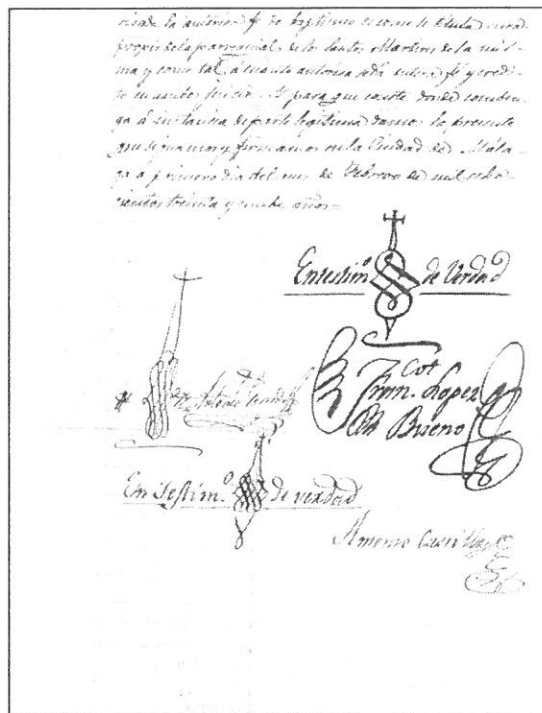 la anterior fe de baptismo es como se titula cura
propio de la parroquial de los Santos Martires de la mis-
ma y como tal, á cuanto autorisa se da entera fé y credi-
to en ambos Juicio. Y para que conste donde conven-
ga á instancia de parte legitima damos la presente
que signamos y firmamos en la Ciudad de Mála-
ga á primero dia del mes de Febrero de mil ocho-
cientos treinta y nueve años.
En testim.º de Verdad
Lopez
Bueno
Antonio
En testim.º de verdad